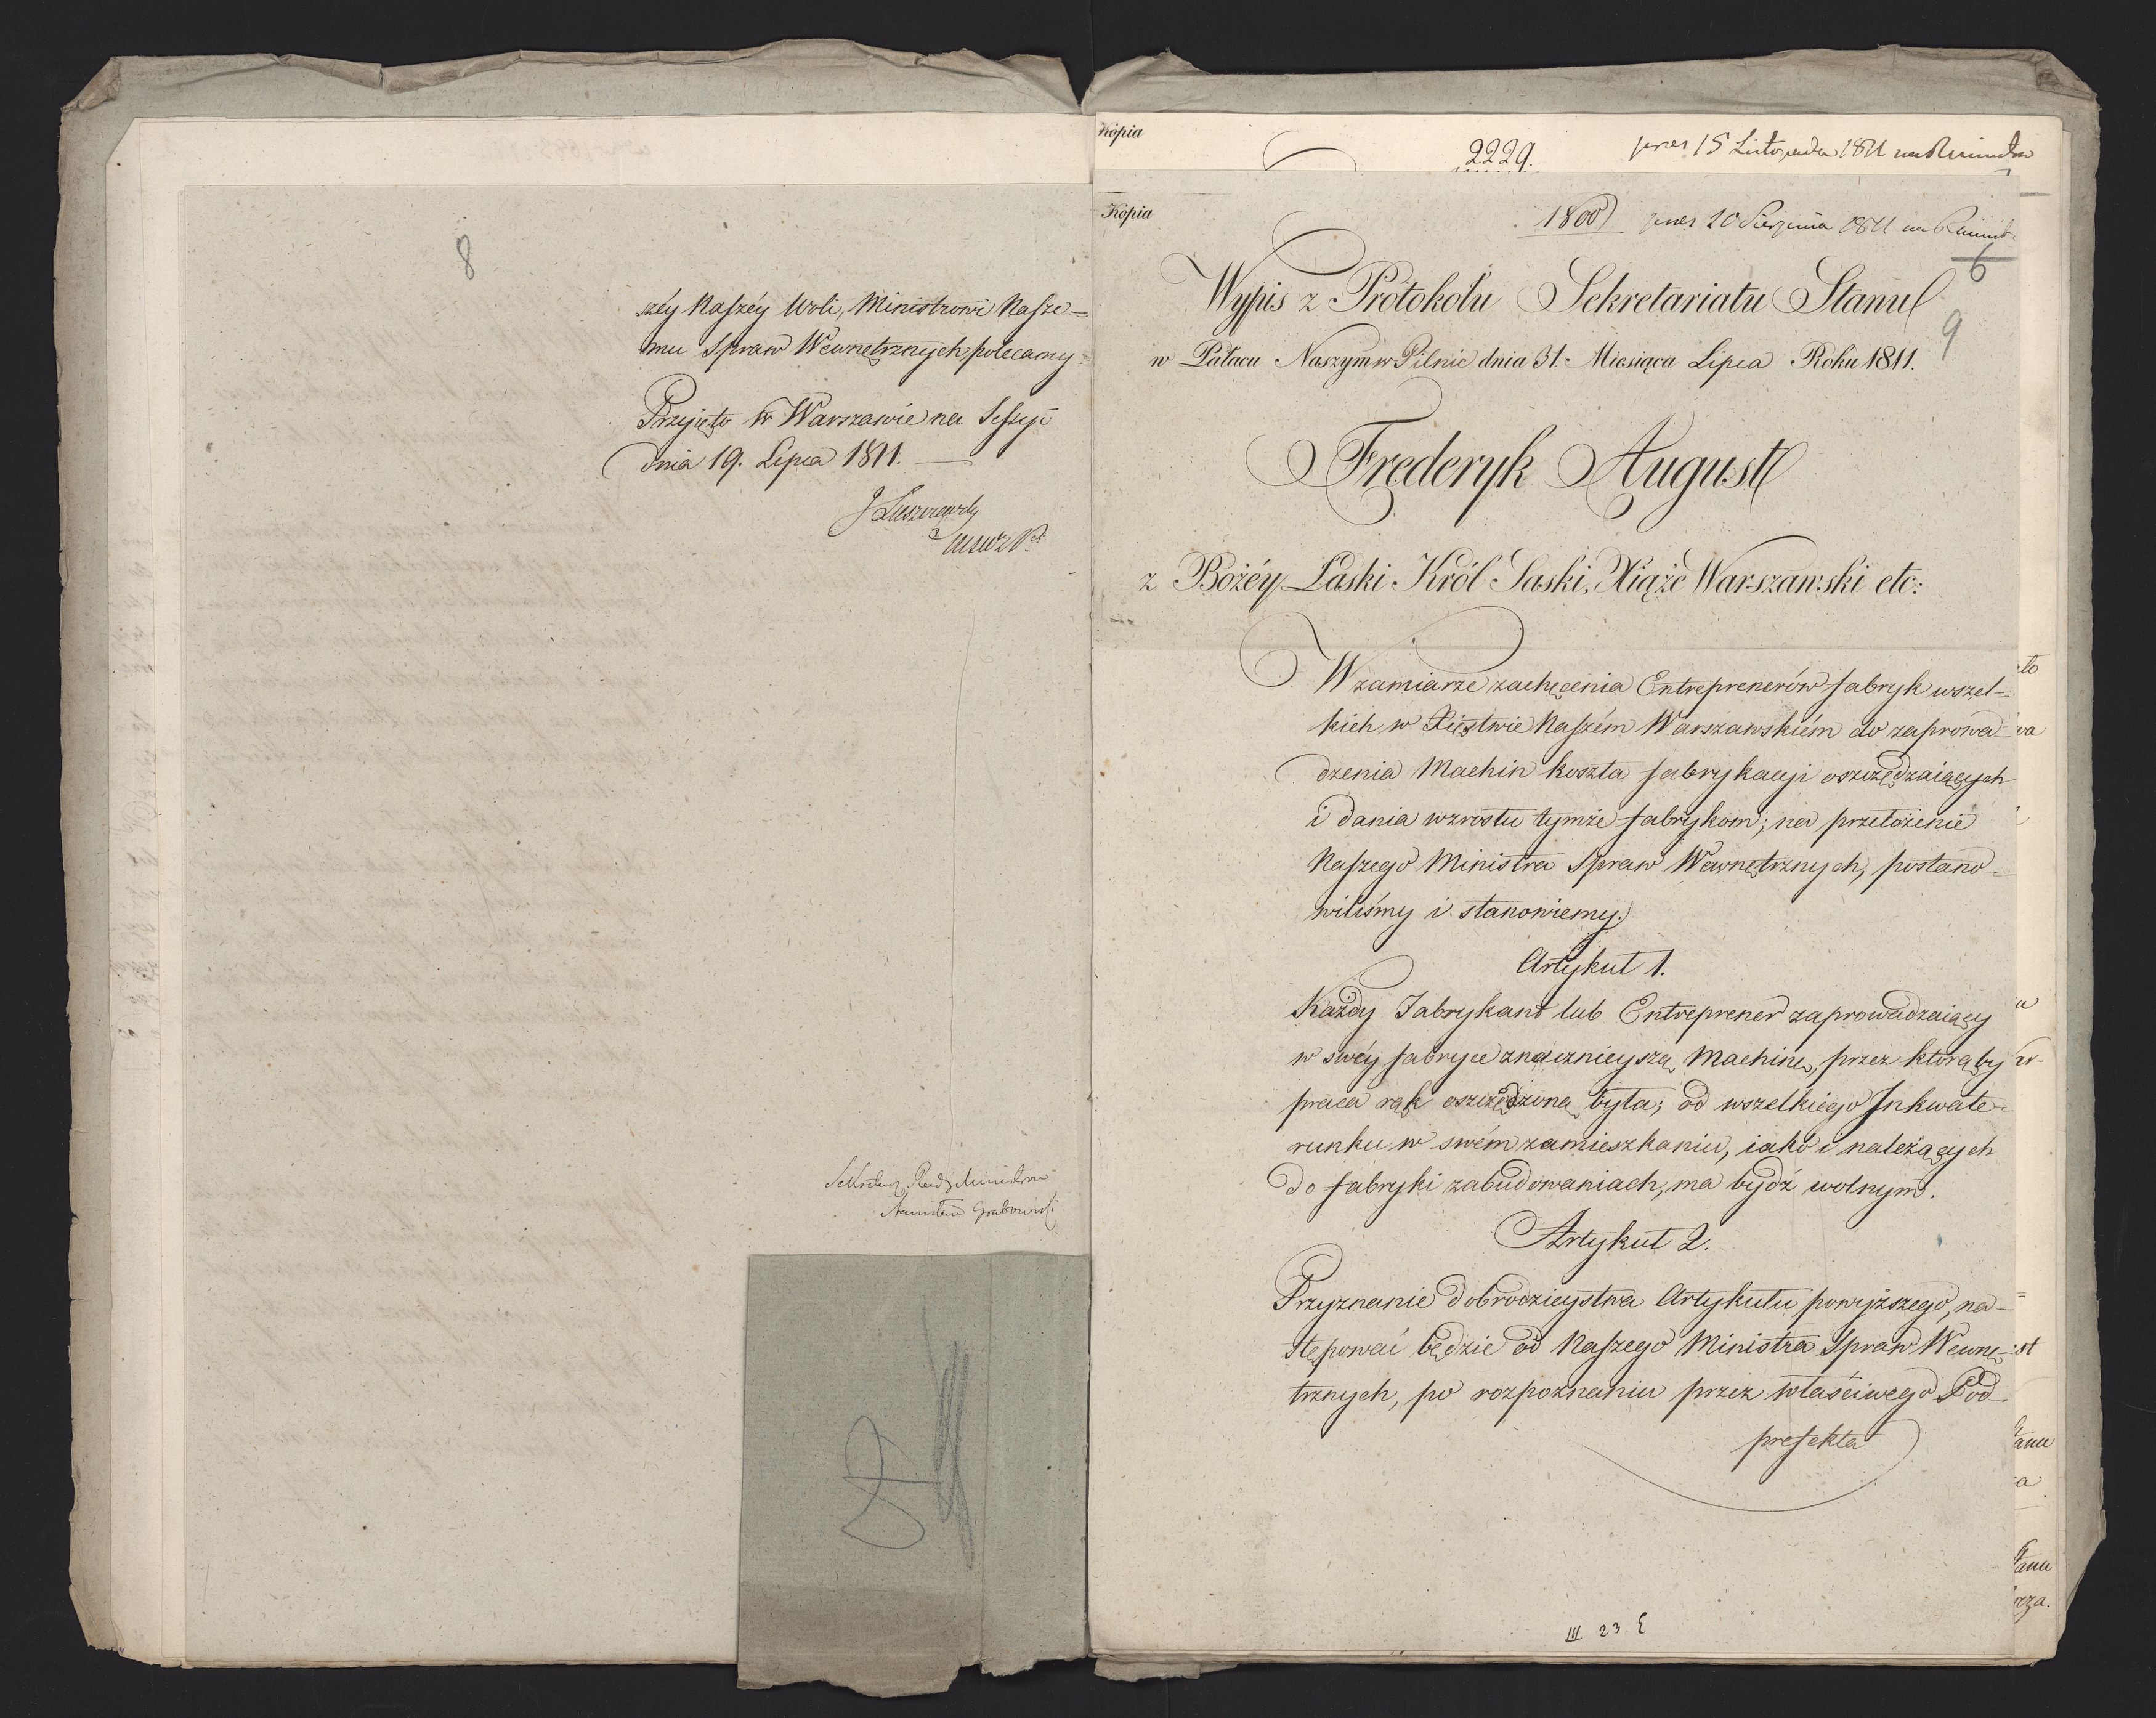 8
széy Naszéy Woli, Ministrowi Nasze=
mu Spraw Wewnętrznych polecamy.
Przyięto w Warszawie na Sessyi
dnia 19. Lipca 1811.
J Łuszczewsky
Sekretarz Rady Ministrów
Stanisław Grabowski
Kopia
2229.
prees 15 Listopada 1811
Kopia
1800 prees 20 Sierpnia 1811
6
Wypis z Protokołu Sekretariatu Stanu
9
w Pałacu Naszym w Pilnic dnia 31. Miesiąca Lipca Roku 1811.
Frederyk August
z Bożéy Łaski Król Saski, Xiąże Warszawski etc:
W zamiarze zachęcenia Entreprenerów fabryk wszel=
kich w Xięstwie Naszém Warszawskiém do zaprowa=
dzenia Machin koszta fabrykacyi oszczędzaiących
i dania wzrostu tymże fabrykom; na przełożenie
Naszego Ministra Spraw Wewnętrznych, postano=
wiliśmy i stanowiemy.
Artykuł 1.
Każdy Fabrykant lub Entreprener zaprowadzaiący
w swéy fabryce znacznieyszą Machinę, przez którąby
praca rąk oszczędzoną była; od wszelkiego Inkwate=
runku w swém zamieszkaniu, iako i należących
do fabryki zabudowaniach, ma bydź wolnym.
Artykuł 2.
Przyznanie dobrodzieystwa Artykułu powyższego, na=
stępować będzie od Naszego Ministra Spraw Wewnę=
trznych, po rozpoznaniu przez właściwego Pod=
prefekta
III 23 ξ